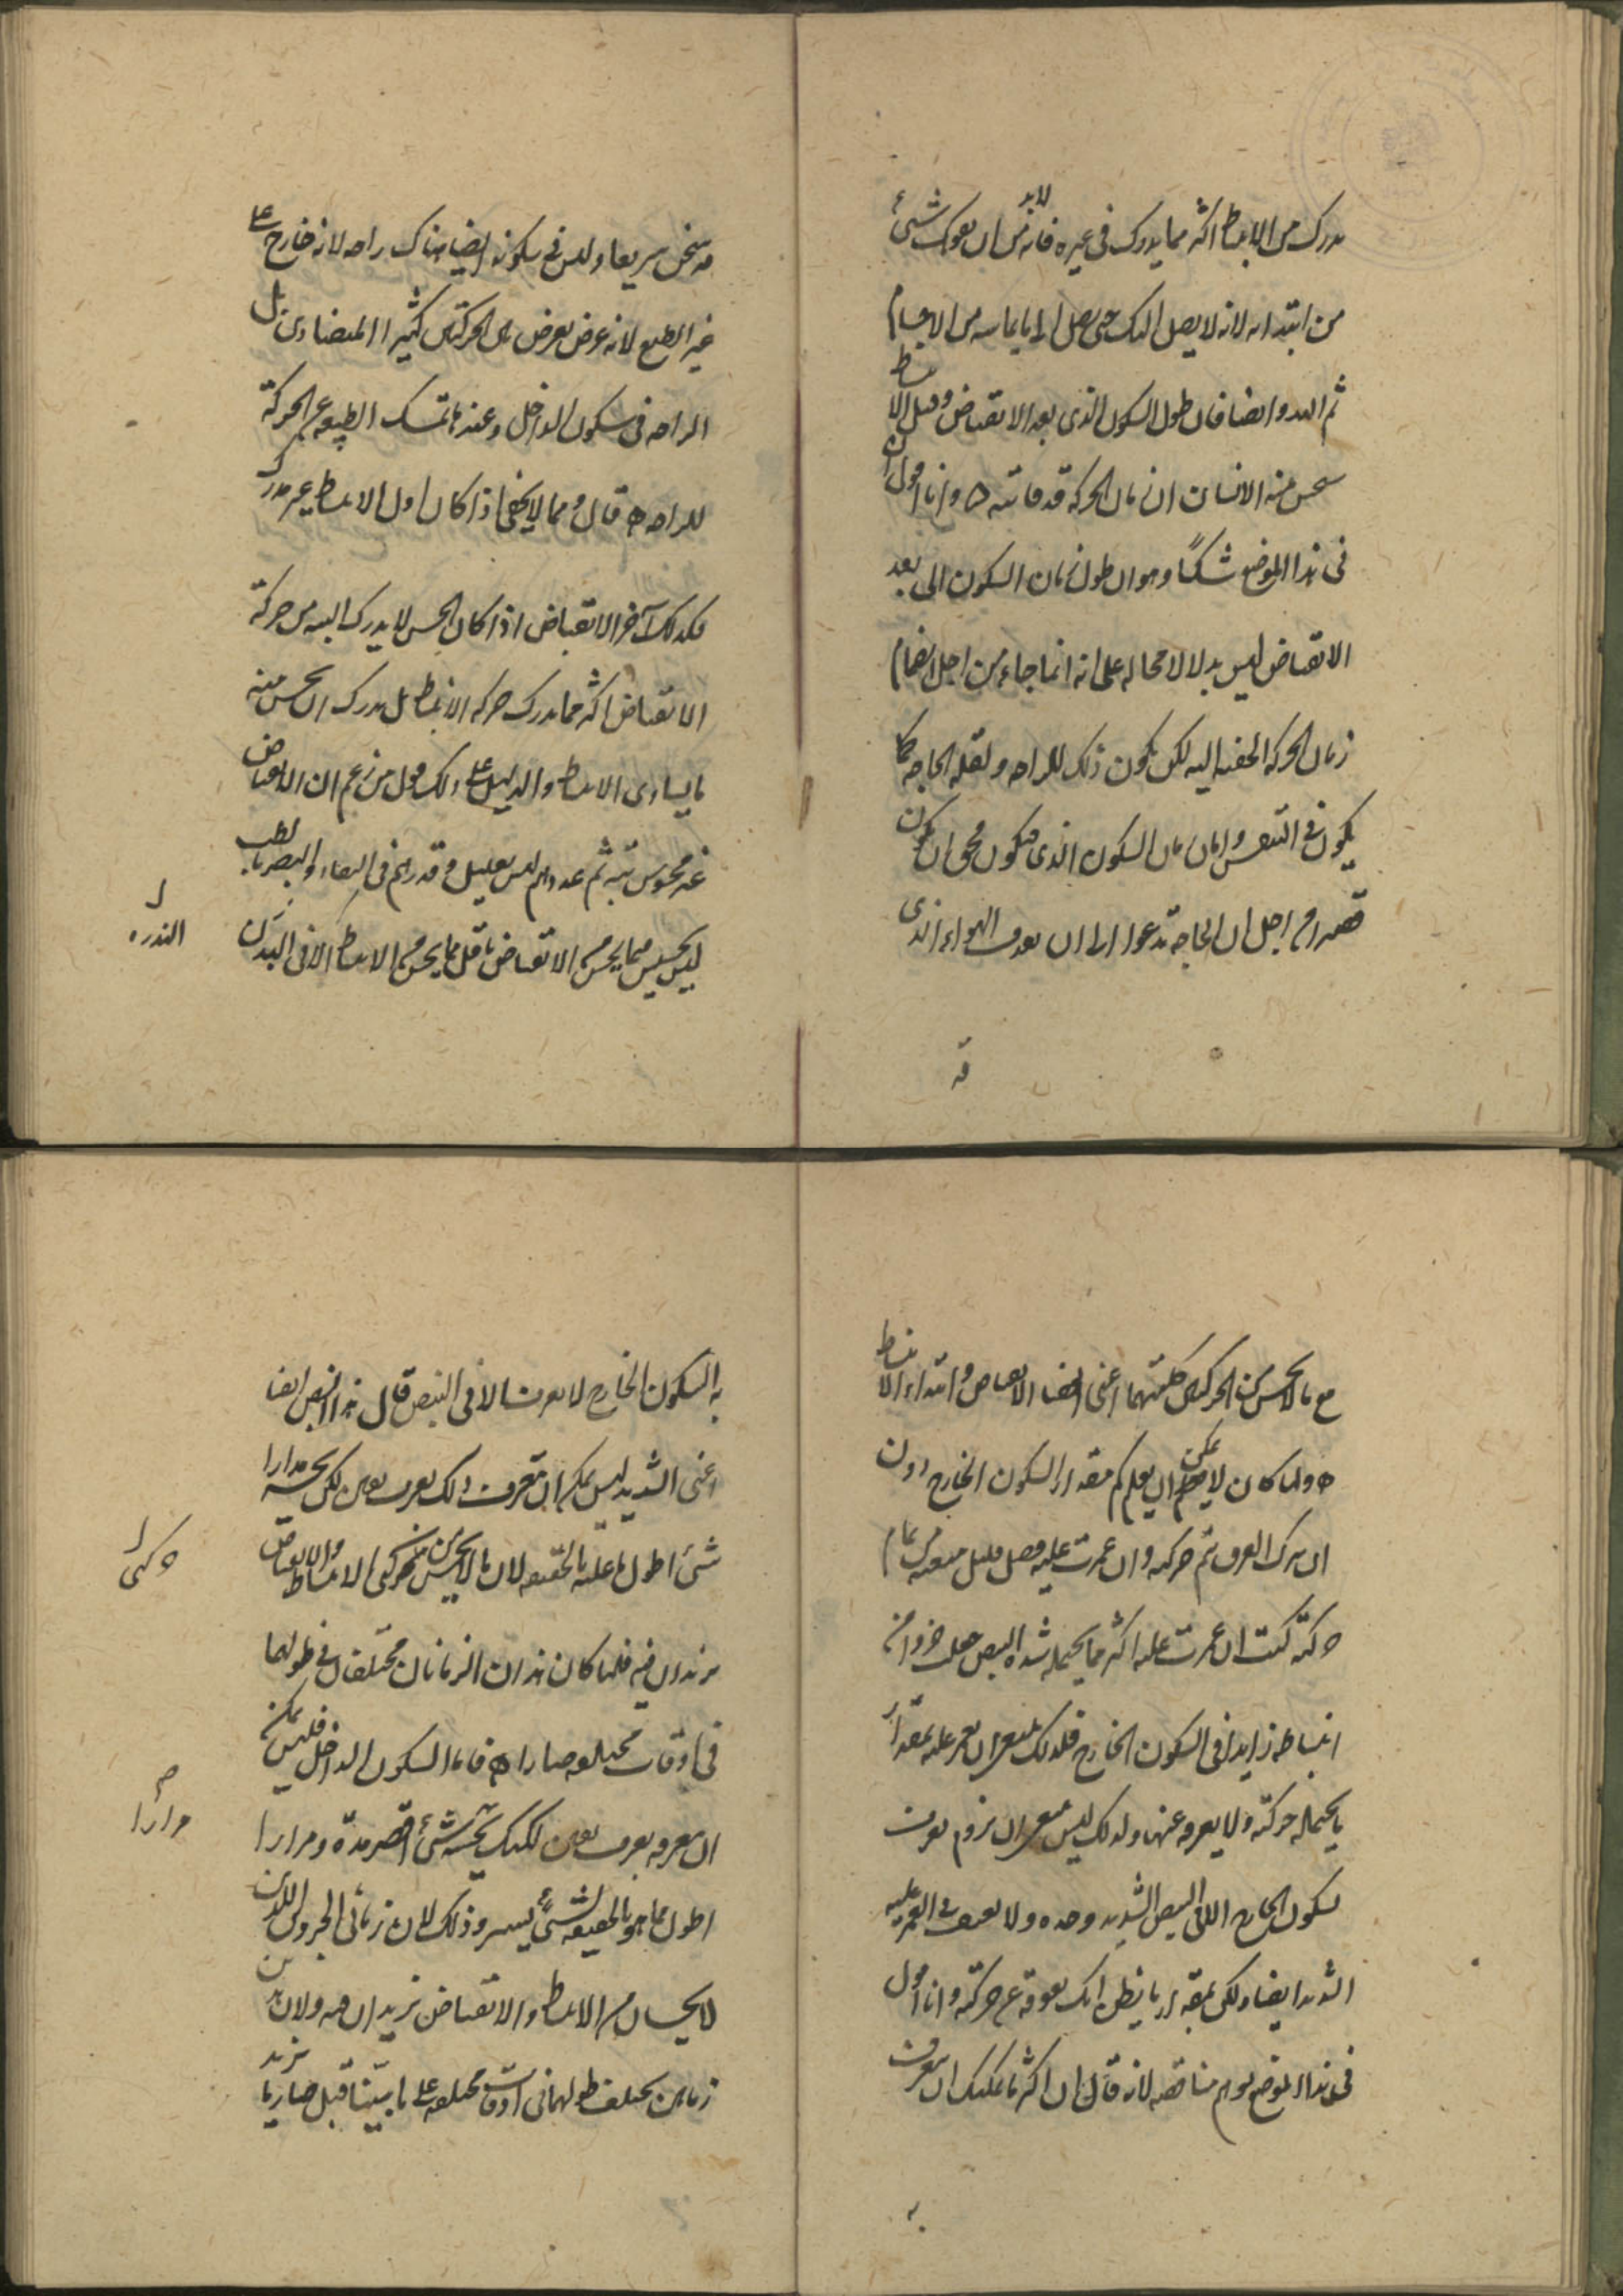 يدرك من الانبساط اكثر مما يدرك فى غيره فانه لابد من ان يفوتك شىء
من ابتدائه لانه لا يصل اليك حتى يصل الى ما يماسه من الاجسام
ثم اليد وايضا فان طول السكون الذى بعد الانقباض وقبل الانبساط
منه الانسان ان زمان الحركة قد فاتته ه وانا اقول ان
فى هذا الموضع شكًا وهو ان طول زمان السكون الى بعد
الانقباض ليس يدلا لا محاله على انه انما جاء من اجل انضمام
زمان الحركة الخفية اليه لكن يكون ذلك للراحه ولقلة الحاجه كما
يكون فى التنفس السكون الذى ان يكون
من اجل ان الحاجة تدعوا الى ان الهواء الذى
قد
قد سخن سريعا وليس فى سكونه ايضا هناك راحه لانه خارج على
غير الطبع لانه عرض يعرض بين الحركتين كثيرا المتضادتين بل
الراحه فى سكون الداخل وعندها تمسك الطبيعه عن الحركة
للراحه ه قال ومما لا يخفى اذا كان اول الانبساط غير مدرك
فكذلك آخر الانقباض اذا كان الحس لا يدرك البته من حركة
الانقباض اكثر مما يدرك من حركة الانبساط بل يدرك ان يحس منه
ما يساوى الانبساط والدليل على ذلك قول من زعم ان الانقباض
غير محسوس بته ثم عددهم ليس بقليل وقدرهم فى البقاء والبصر بالطب
ليس بخسيس مما يحس من الانقباض باقل مما يحس من الانبساط الا فى البدن
ل
الندره
مع ما لا يحس من الحركتين كلتيهما اعنى انقضاء الانقباض وابتداء الانبساط
ه ولما كان لا يمكن ان يعلم كم مقدار السكون الخارج دون
ان يترك العرق ثم حركته وان غمزت عليه فضل قليل منعته من تمام
حركته كنت ان غمزت عليه اكثر مما يحتمله شدة النبض جعلت جزوا من
انبساطه زايدا فى السكون الخارج فلذلك ينبغى ان يغمز عليه بمقدار
ما يحتمله حركته ولا يعوقه عنها ولذلك ليس ينبغى ان تروم تعرف
سكون الخارج الا فى النبض الشديد وحده ولا تعنف فى الغمز عليه
الشديد ايضا ولكن بمقدار ما يظن انك تعوقه عن حركته وانا اقول
فى هذا الموضع يوهم مناقضه لانه قال ان اكثر ما يمكنك ان تعرف
به
به السكون الخارج لا يعرف الا فى النبض قال هذا النبض ايضا
اعنى الشديد ليس يمكن ان تعرف ذلك تعرف يقين لكن يحسه مرارا
شىء اطول ما عليه بالحقيقه لان ما لا يحس من حركتى الانبساط والانقباض
يزيدون فيه فلما كان هذان الزمانان مختلفان فى طولهما
فى اوقات مختلفه صارا ه فاما السكون الداخل فليس يمكن
ان تعرفه تعرف يقين لكنك تحسه شىء اقصر مدة ومرارا
اطول مما هو بالحقيقه لشىء يسير وذلك لان زمانى الجزوين اللذين
لا يحسان من الانبساط والانقباض يزيدان فيه ولان هذين
زمانين يختلف طولهما فى اوقات مختلفه على ما بيّنا قبل صار ما يزيد
ل
حركتى
صح
مرارا